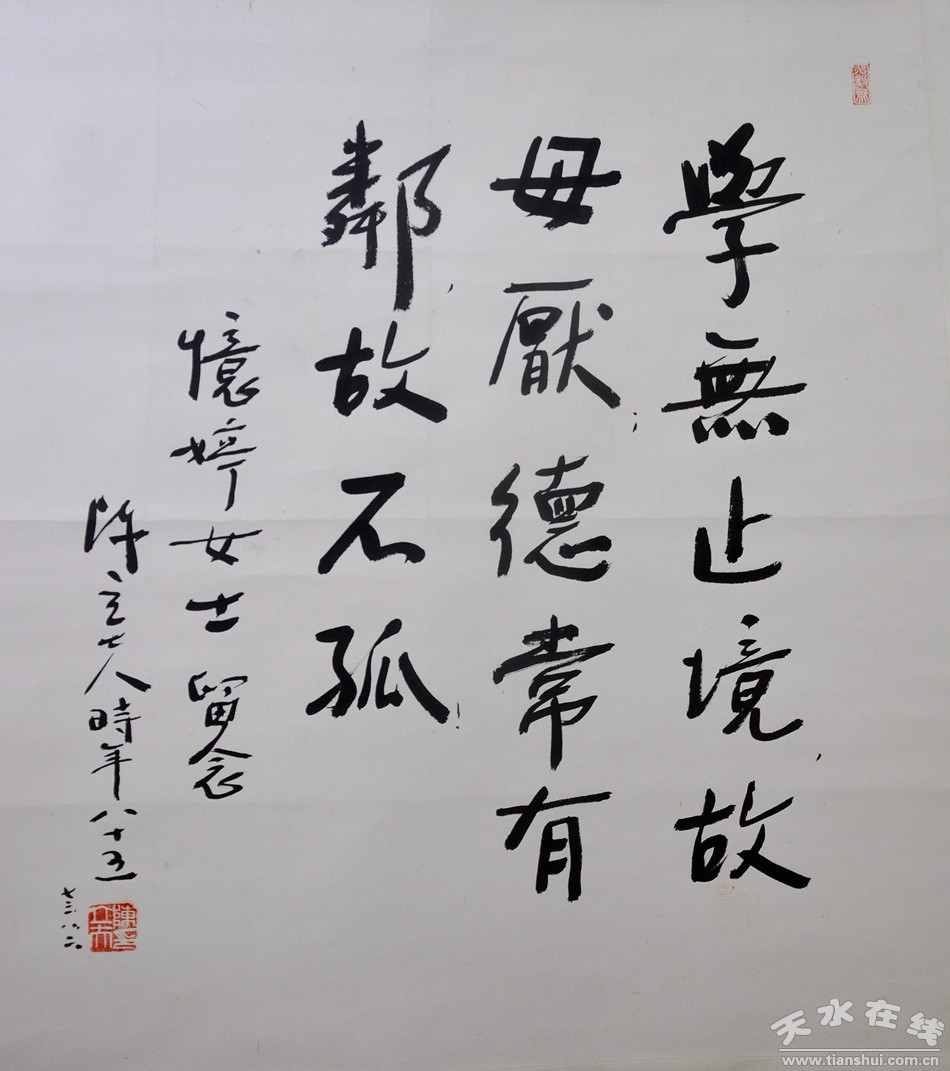 學無止境,故
毋厭;德常有
鄰,故不孤!
憶婷女士留念
陳立夫時年八十五
七三、八、二
天水在线
www.tianshui.com.cn